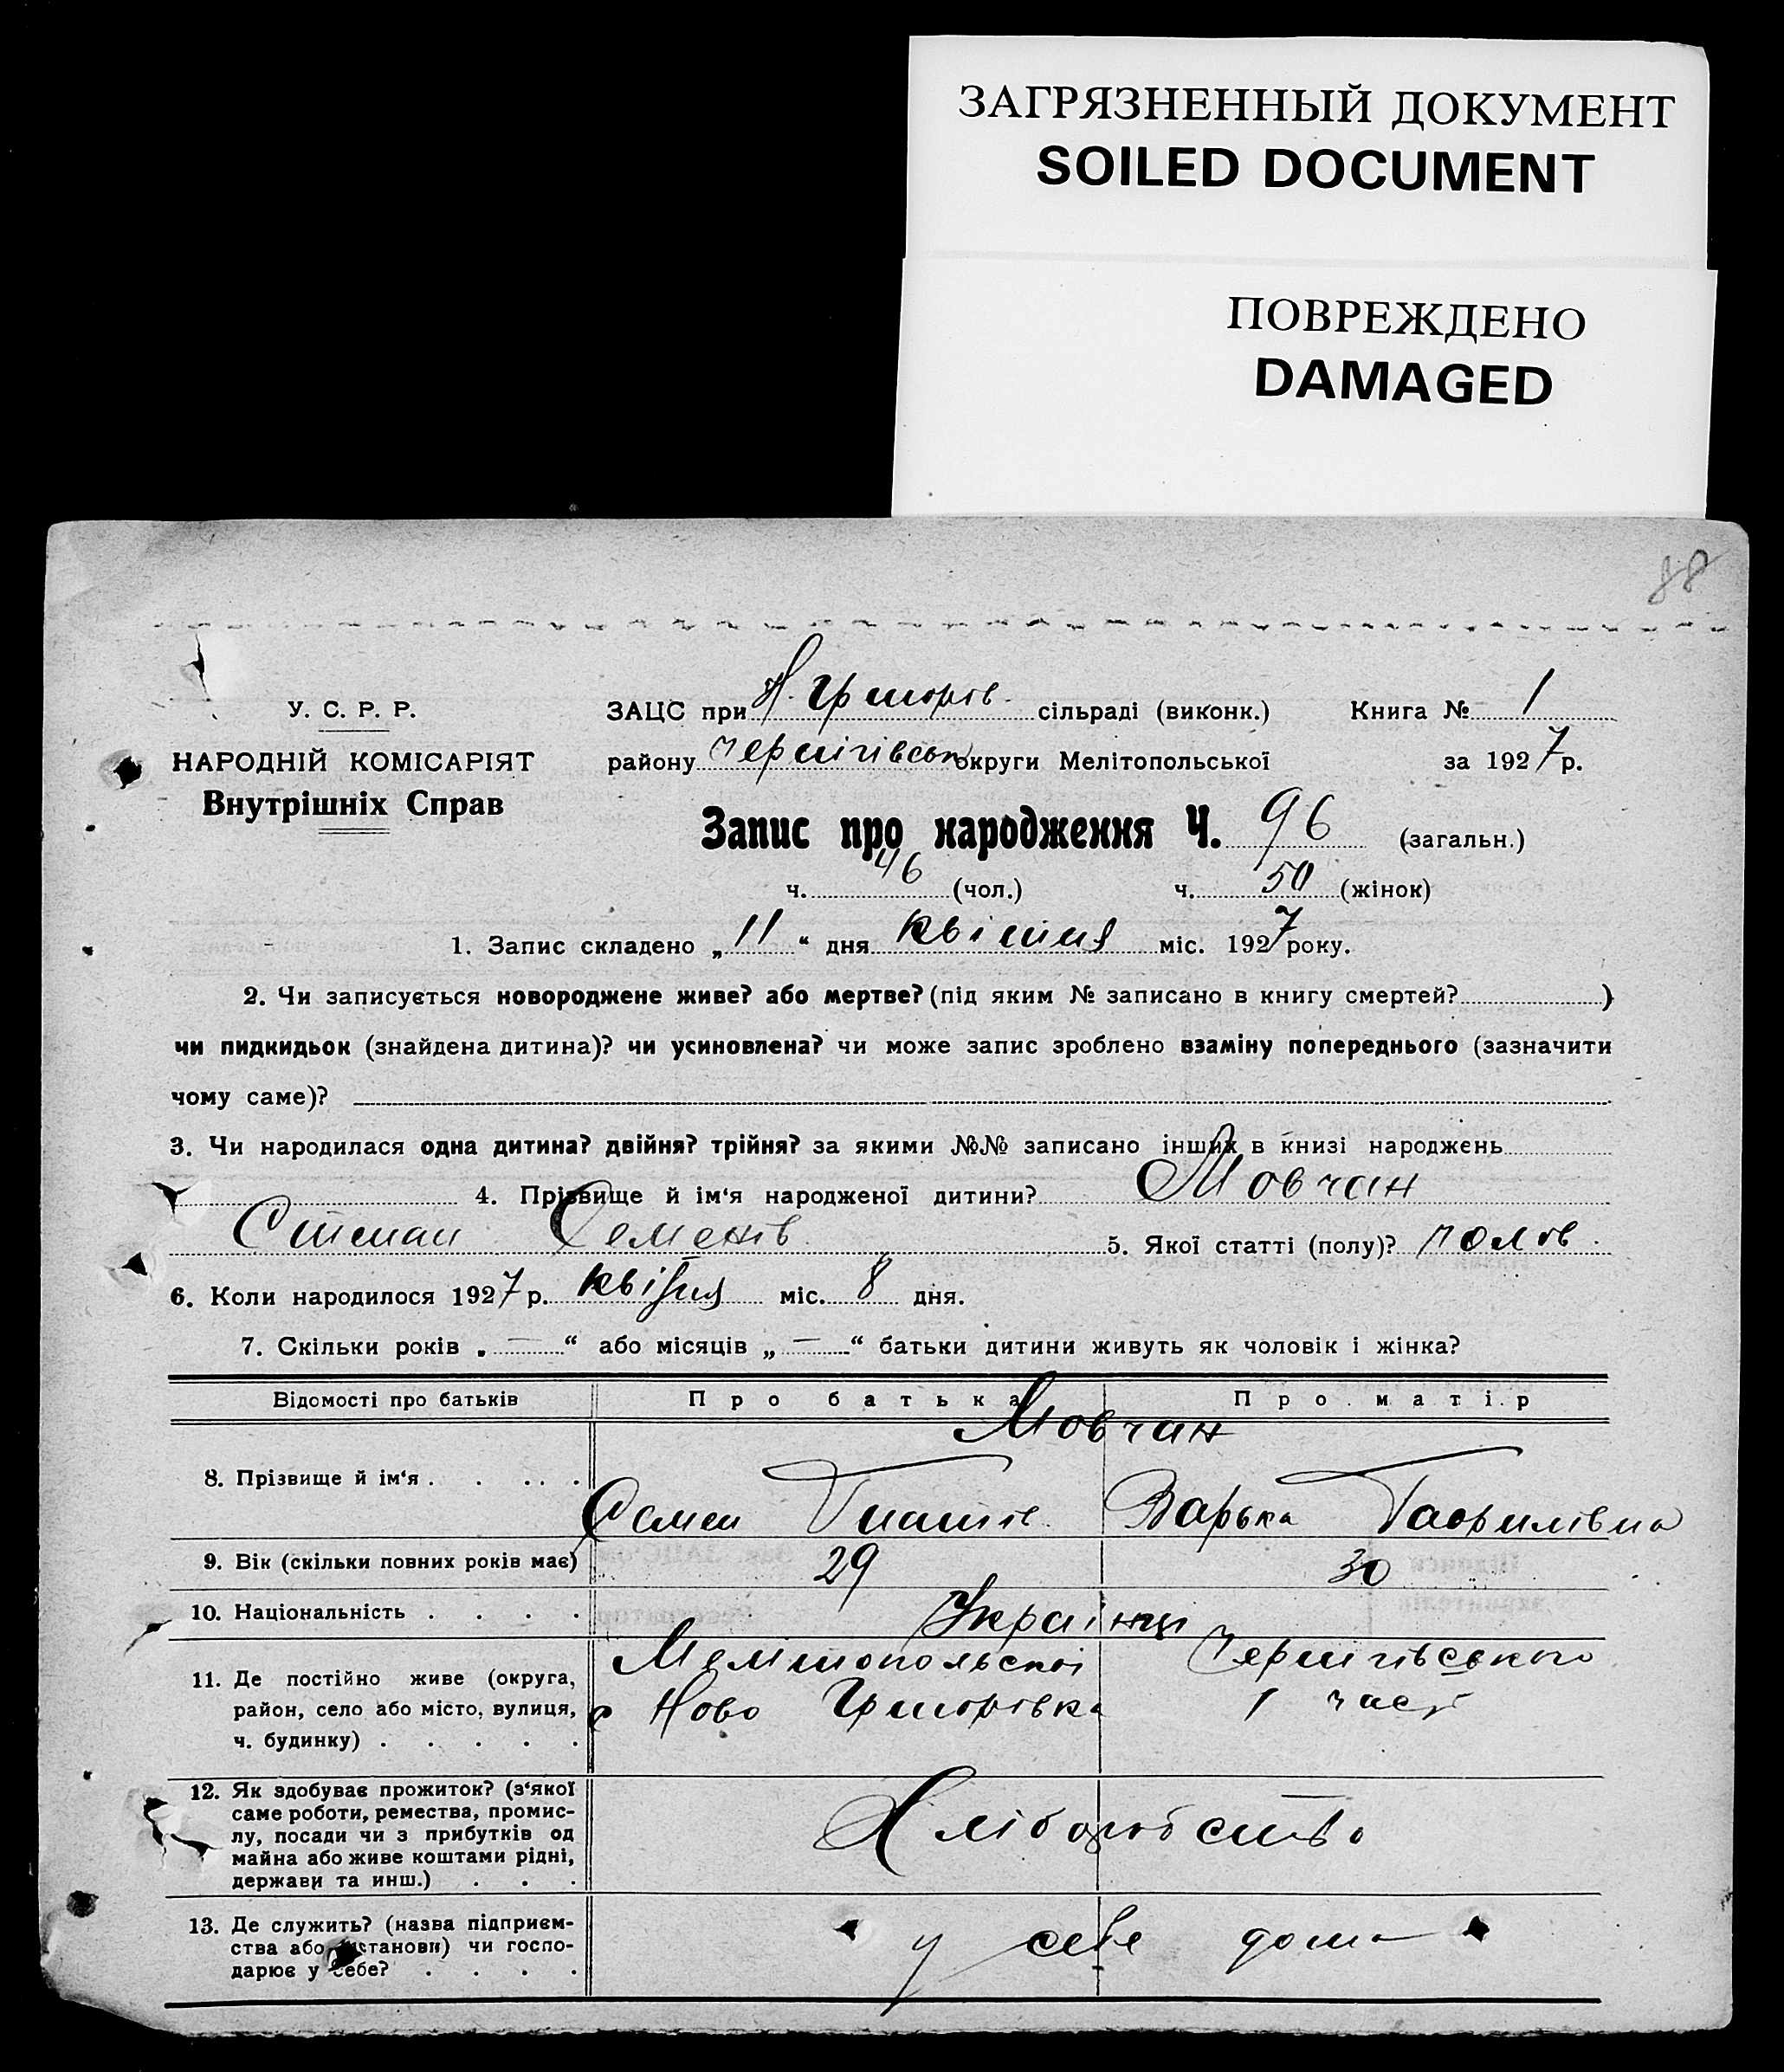 ЗАГРЯЗНЕННЫЙ ДОКУМЕНТ
SOILED DOCUMENT
ПОВРЕЖДЕНО
DAMAGED
88
У. С. Р. Р.
НАРОДНІЙ КОМІСАРІЯТ
Внутрішніх Справ
ЗАЦС при Н. Григорів. сільраді (виконк.) Книга № 1
району Чернігівськ округи Мелітопольської за 1927 р.
Запис про народження Ч. 96 (загальн.)
ч. 46 (чол.) ч. 50 (жінок)
1. Запис складено „11“ дня квітня міс. 1927 року.
2. Чи записується новороджене живе? або мертве? (під яким № записано в книгу смертей? )
чи пидкидьок (знайдена дитина)? чи усиновлена? чи може запис зроблено взаміну попереднього (зазначити
чому саме)?
3. Чи народилася одна дитина? двійня? трійня? за якими №№ записано інших в книзі народжень
4. Прізвище й ім‘я народженої дитини? Мовчан
Степан Семенів. 5. Якої статті (полу)? чолов.
6. Коли народилося 1927 р. квітня міс. 8 дня.
7. Скільки років „—“ або місяців „—“ батьки дитини живуть як чоловік і жінка?
Відомості про батьків Про батька Про матір
Мовчан
8. Прізвище й ім‘я . . . . .
Семен Гнатів. Варька Гаврилівна
9. Вік (скільки повних років має) 29 30
10. Національність . . . . Українці
11. Де постійно живе (округа,
район, село або місто, вулиця,
ч. будинку) . . . . .
Мелітопольської Чернігівського
с Ново Григорівка 1 част
12. Як здобуває прожиток? (з‘якої
саме роботи, ремества, промис-
лу, посади чи з прибутків од
майна або живе коштами рідні,
держави та инш.) . . .
Хліборобство
13. Де служить? (назва підприєм-
ства або установи) чи госпо-
дарює у себе? . . . .
у себе дома